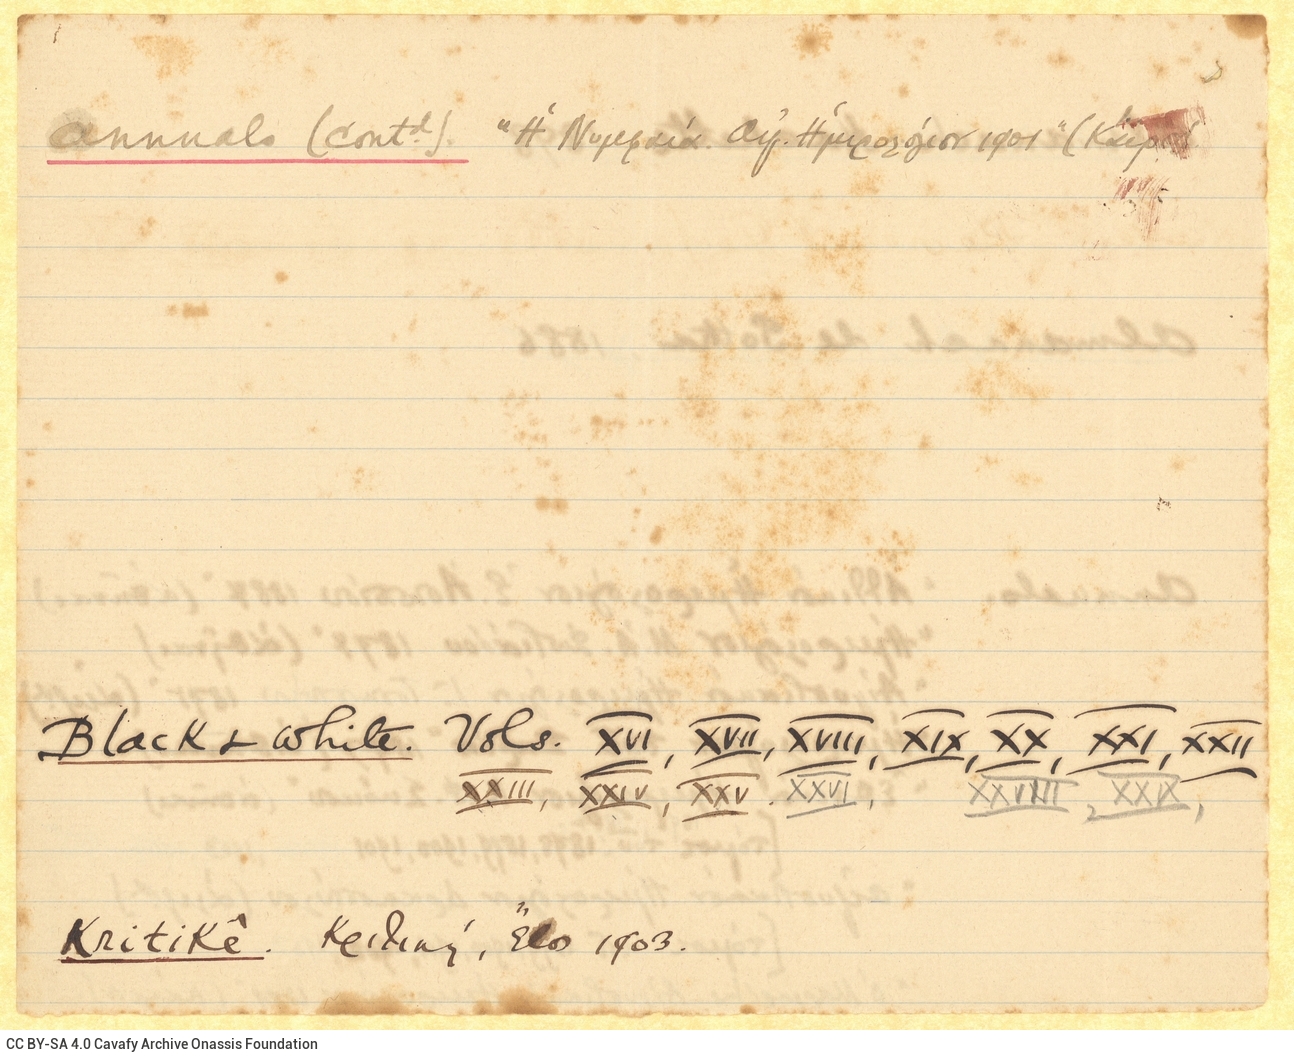 Annuals (contd.) "Ἡ Νυμφαία. Αἰγ. Ἡμερολόγιον 1901" (Κάϊρον
Black & White. Vols. XVI, XVII, XVIII, XIX, XX, XXI, XXII
XXIII, XXIV, XXV. XXVI, XXVIII, XXIX,
Kritikê. Κριτική, Ἔτος 1903.
CC BY-SA 4.0 Cavafy Archive Onassis Foundation